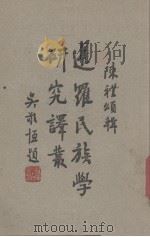 陳禮頌輯
暹羅民族學
研究譯叢
吳敬恆題